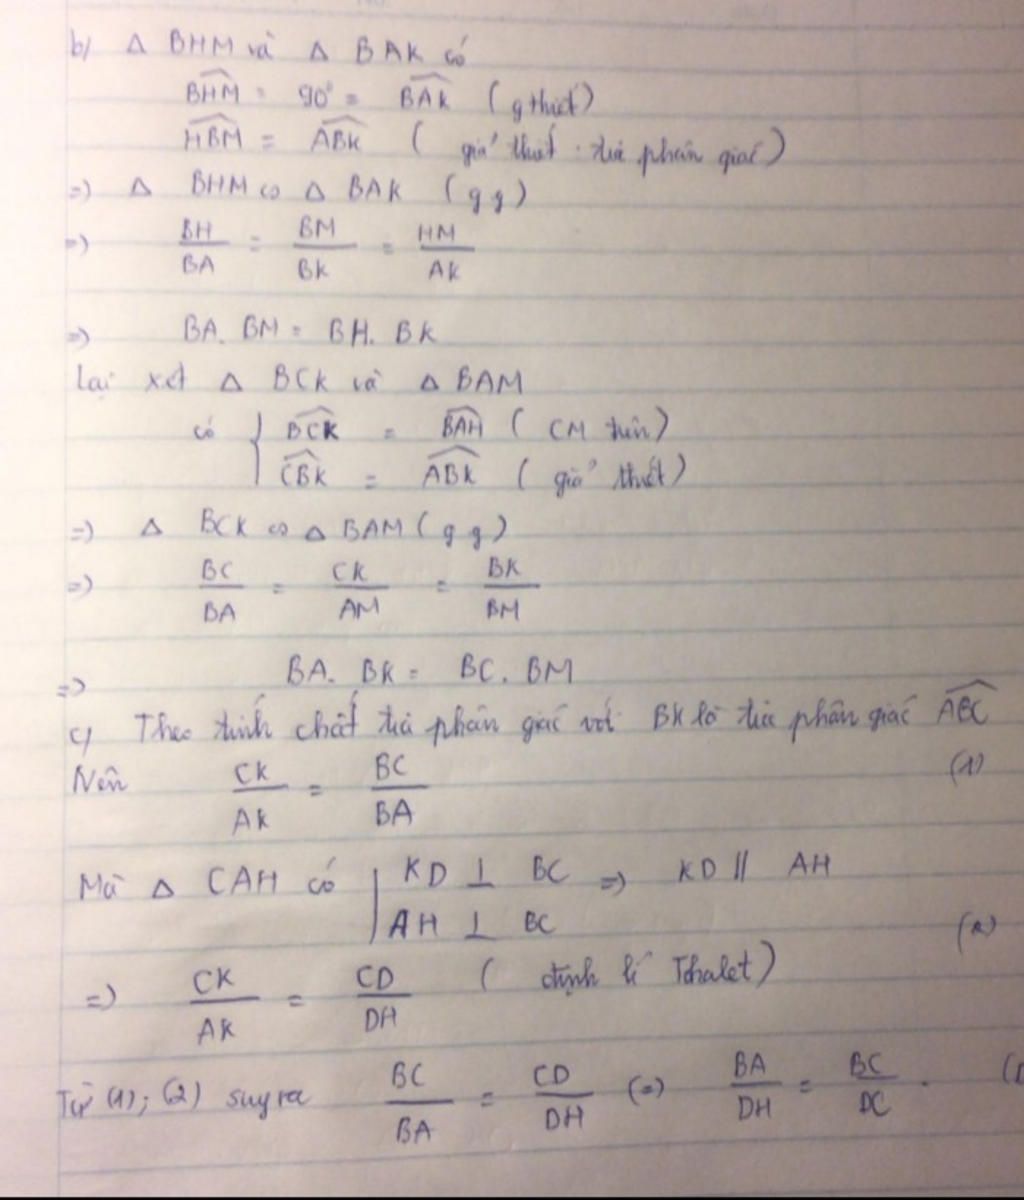 b) Δ BHM và Δ BAK có
BHM = 90° = BAK (gthiết)
HBM = ABK (giả thiết tia phân giác)
=) Δ BHM ∽ Δ BAK (g g)
=) BH/BA = BM/BK = HM/AK
=) BA. BM = BH. BK
Lại xét Δ BCK và Δ BAM
có { BCK = BAH (CM trên)
CBK = ABK (giả thiết)
=) Δ BCK ∽ Δ BAM (g g)
=) BC/BA = CK/AM = BK/BM
=) BA. BK = BC. BM
c) Theo tính chất tia phân giác với BK là tia phân giác ABC
Nên CK/AK = BC/BA (1)
Mà Δ CAH có | KD ⊥ BC =) KD // AH
AH ⊥ BC
=) CK/AK = CD/DH (định lí Thalet) (2)
Từ (1); (2) suy ra BC/BA = CD/DH (=) BA/DH = BC/DC.